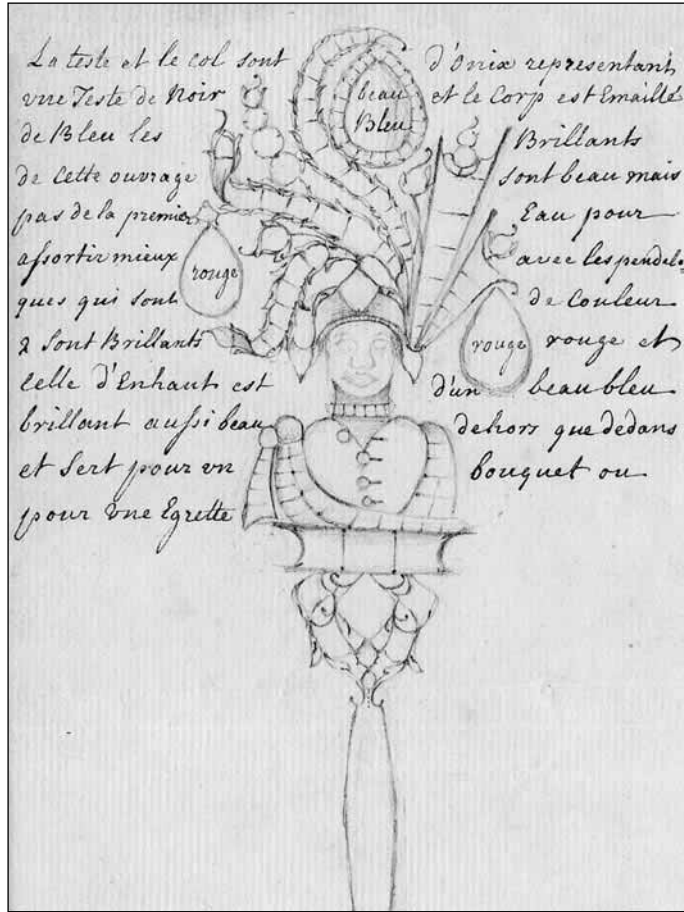 La teste et le col sont d'Onix representant
une Teste de Noir et le Corp est Emaillé
de Bleu les Brillants
de Cette ouvrage sont beau mais
pas de la premier Eau pour
assortir mieux avec les pendelo-
ques qui sont de Couleur
2 sont Brillants rouge et
Celle d'Enhaut est d'un beau bleu
brillant aussi beau dehors que dedans
et Sert pour un bouquet ou
pour une Egrette
beau
Bleu
rouge
rouge